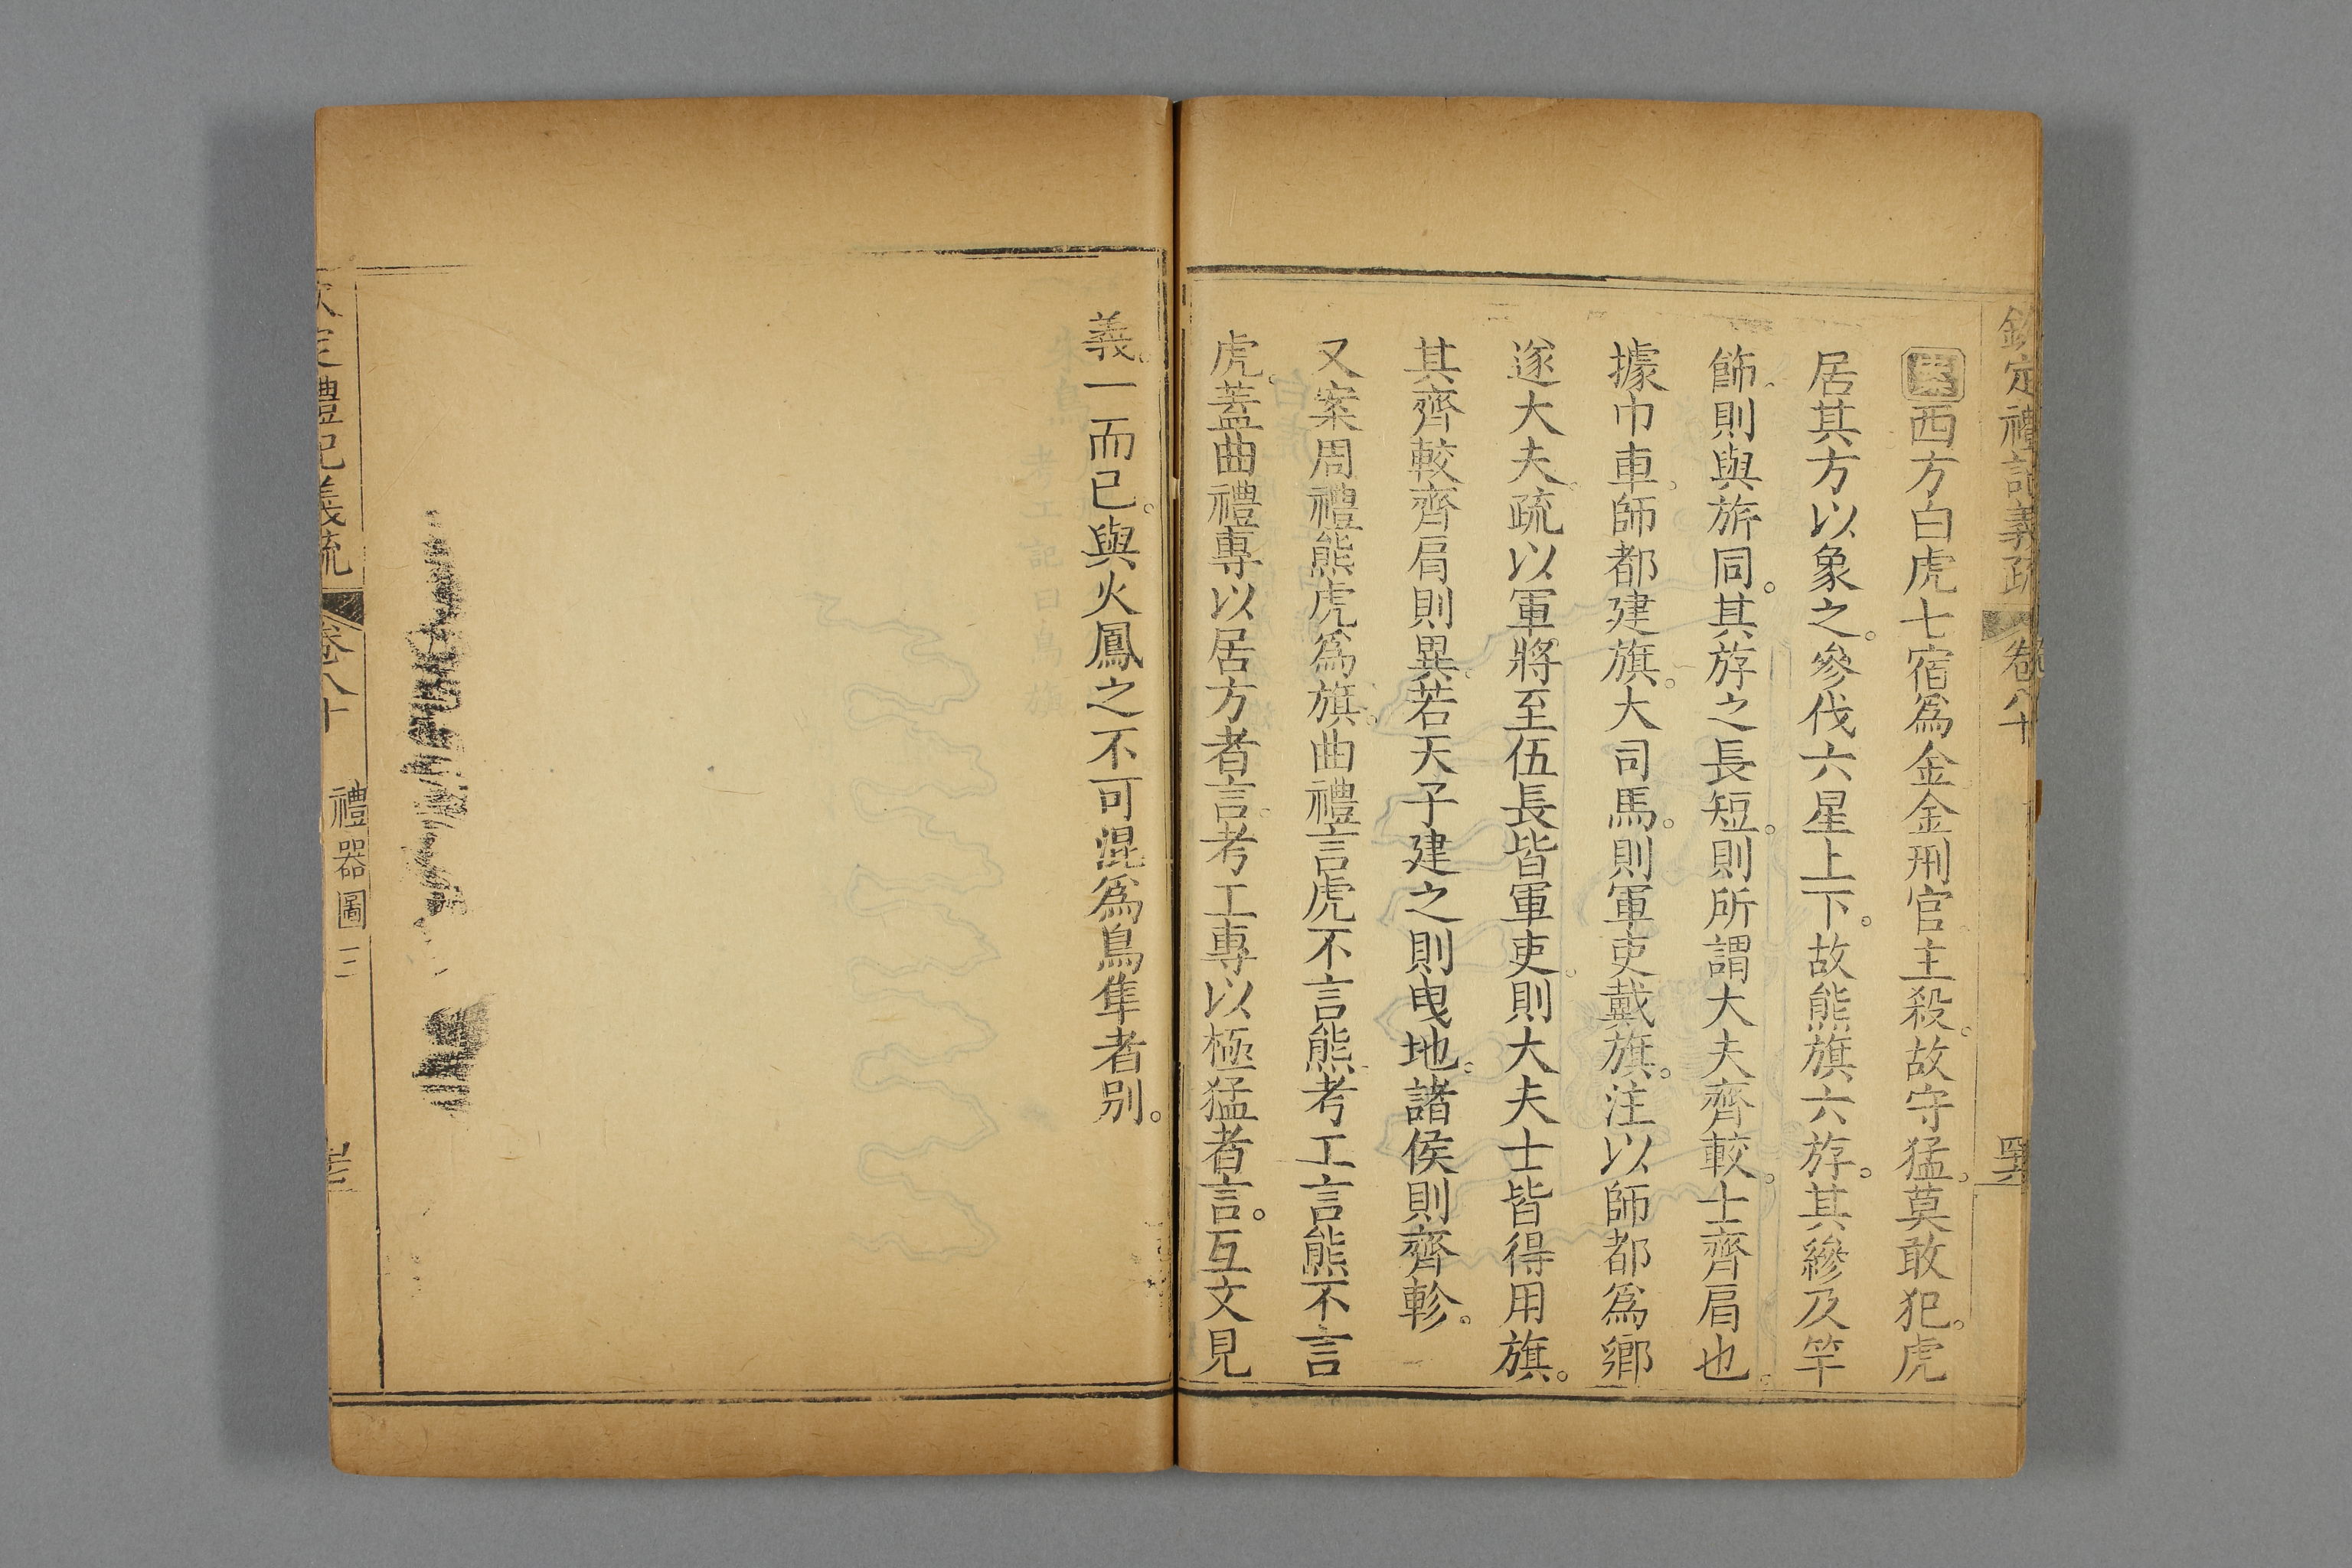 欽定禮記義疏 卷八十
西方白虎七宿爲金金刑官主殺。故守猛。莫敢犯。虎
居其方以象之。參伐六星上下。故熊旗六斿。其縿及竿
飾。則與旂同。其斿之長短。則所謂大夫齊較。士齊肩也。
據巾車。師都建旗。大司馬。則軍吏戴旗。注以師都爲鄉
遂大夫。疏以軍將至伍長皆軍吏。則大夫士皆得用旗。
其齊較齊肩則異。若天子建之則曳地。諸侯則齊軫。
又案周禮熊虎爲旗。曲禮言虎不言熊考工言熊不言
虎。蓋曲禮專以居方者言。考工專以極猛者言。互文見
義。一而已。與火鳳之不可混爲鳥隼者別。
定禮記義疏 卷八十 禮器圖三